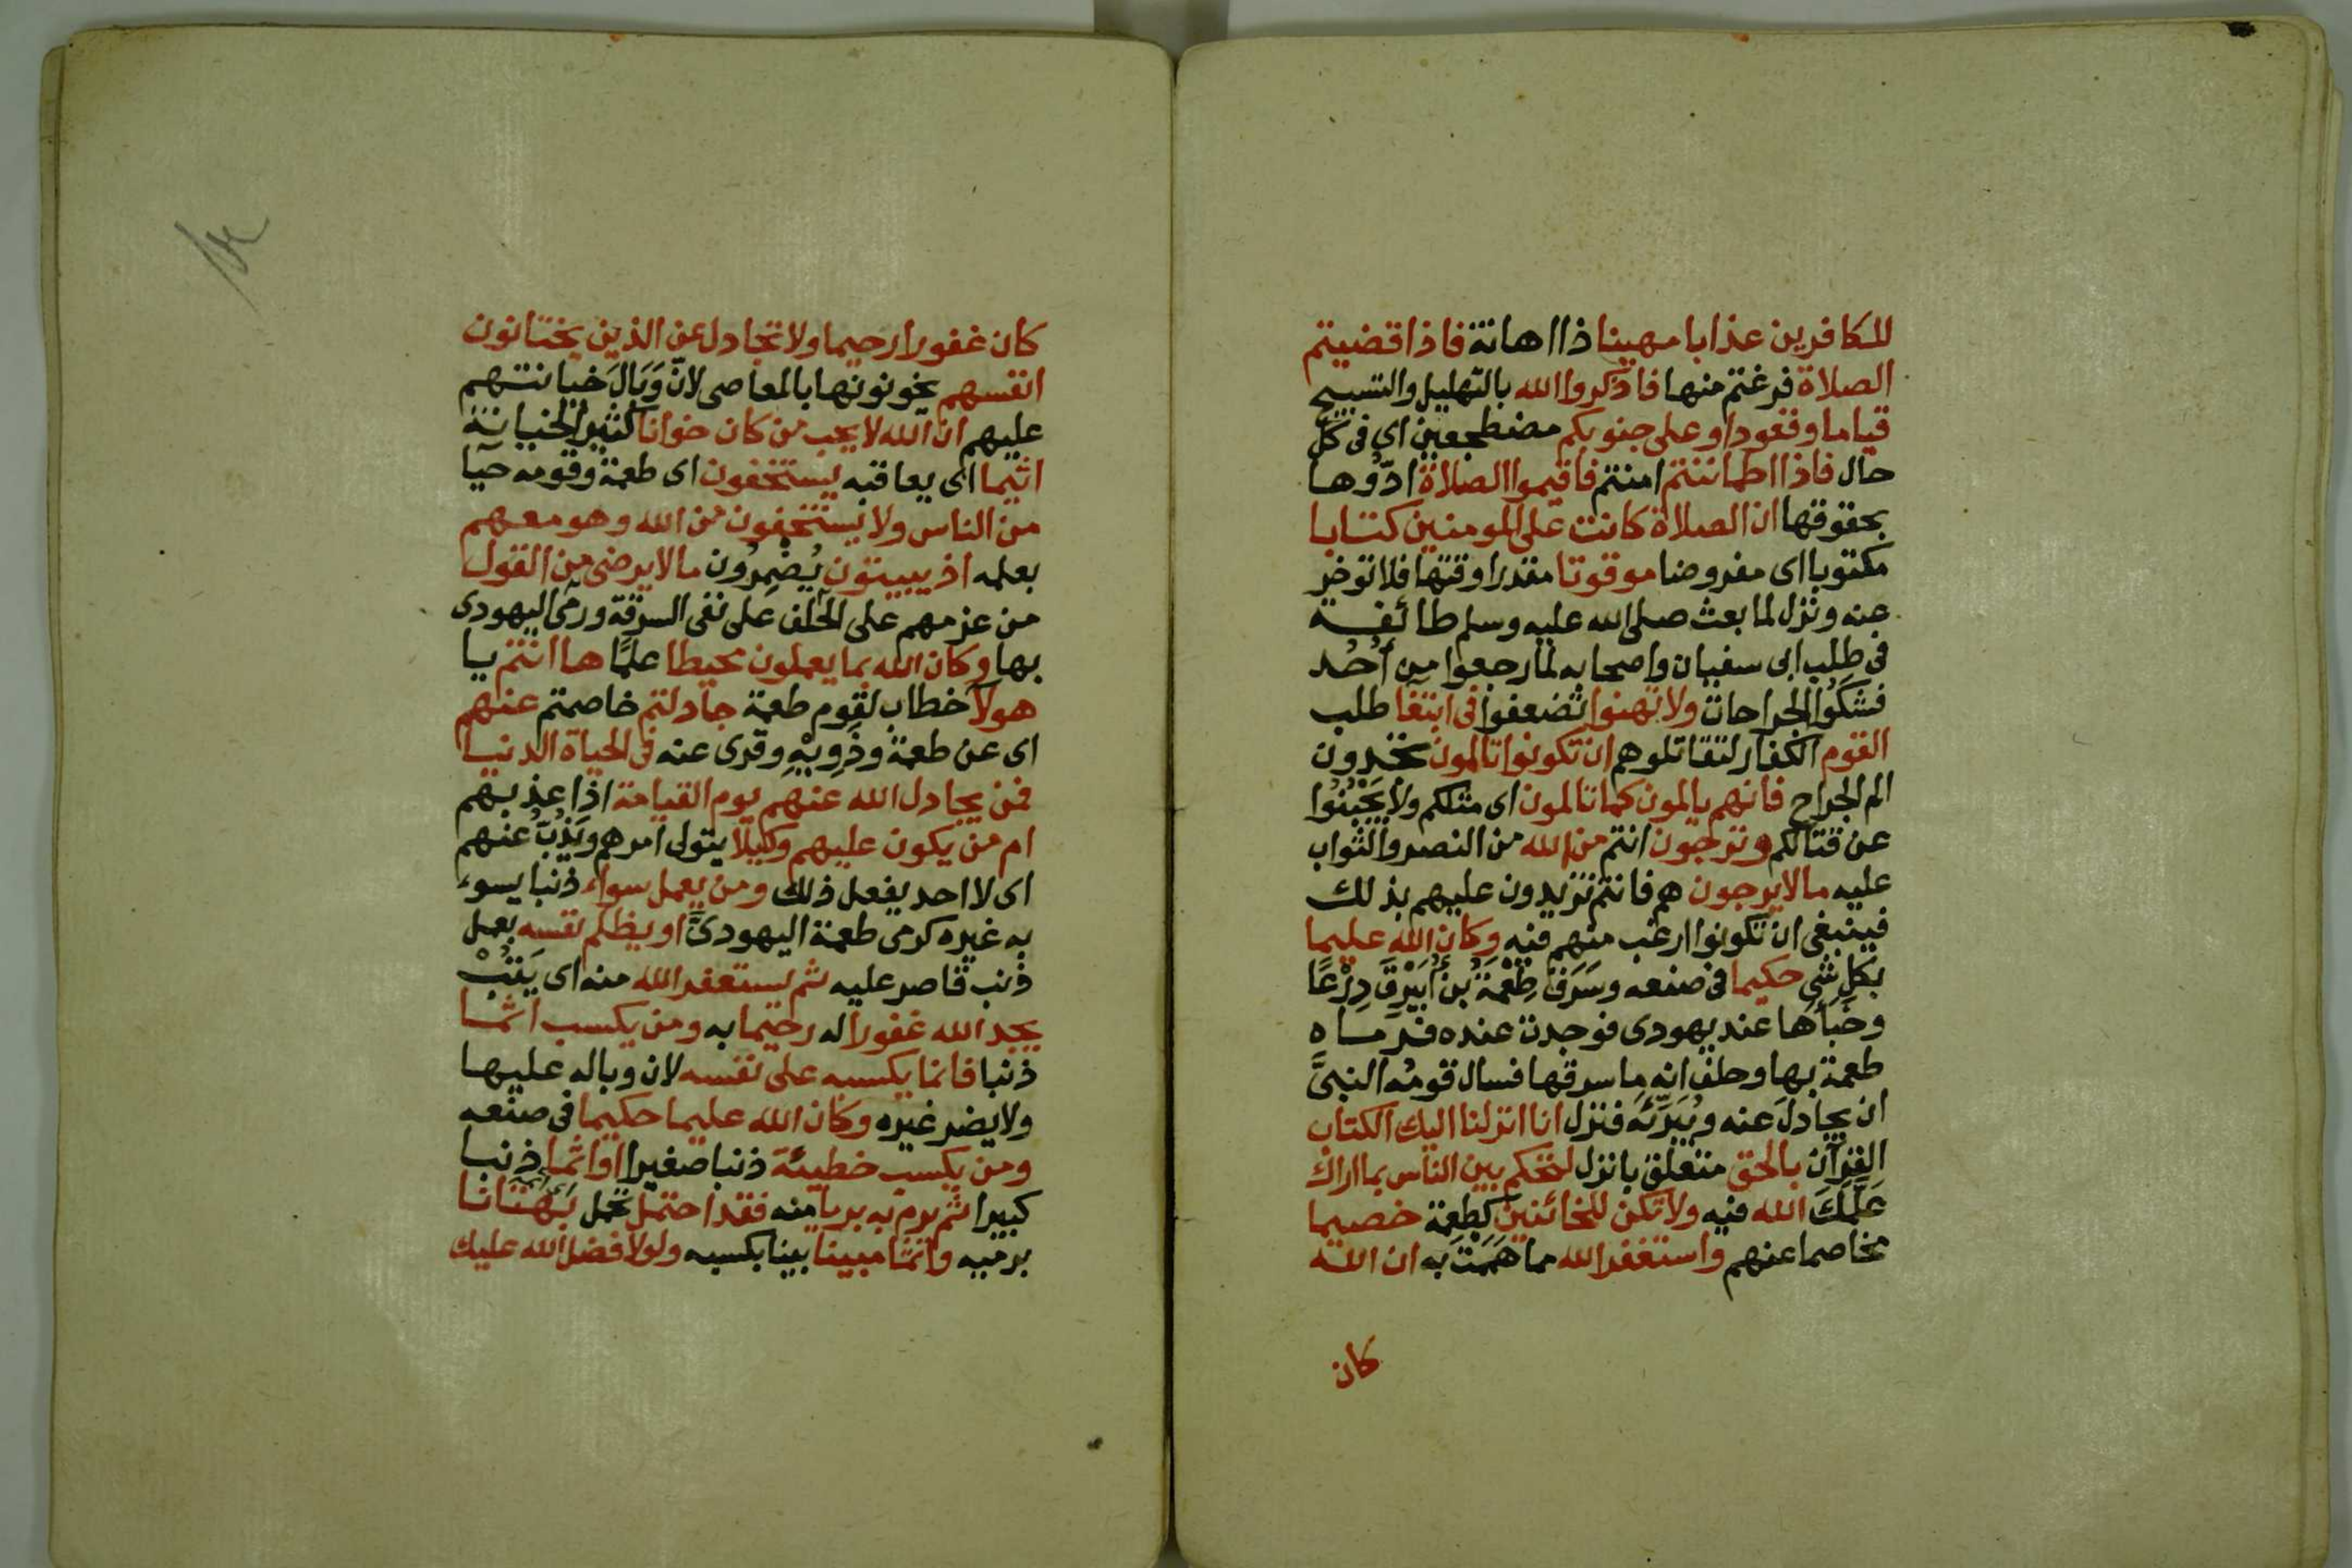 للكافرين عذابا مهينا ذا اهانة فاذا قضيتم
الصلاة فرغتم منها فاذكروا الله بالتهليل والتسبيح
قياما وقعودا وعلى جنوبكم مضطجعين اي في كل
حال فاذا اطماننتم امنتم فاقيموا الصلاة ادّوها
بحقوقها ان الصلاة كانت على المومنين كتابا
مكتوبا اى مفروضا موقوتا مقدرا وقتها فلا توخر
عنه ونزل لما بعث صلى الله عليه وسلم طائفة
في طلب ابى سفيان واصحابه لما رجعوا من أُحُد
فشكَوُا الجراحات ولا تهنوا تضعفوا فى ابتغا طلب
القوم الكفار لتقاتلوهم ان تكونوا تالمون تجدون
الم الجراح فانهم يالمون كما تالمون اى مثلكم ولا يَجْبُنُوا
عن قتالكم وترجون انتم من الله من النصر والثواب
عليه ما لا يرجون هم فانتم تزيدون عليهم بذلك
فينبغى ان تكونوا ارغب منهم فيه وكان الله عليما
بكل شي حكيما فى صنعه وسَرَقَ طِعْمَةُ بن أُبَيْرِقَ دِرْعًا
وخَبَأَها عند يهودى فوجدت عنده فرماه
طعمة بها وحلف انه ما سرقها فسال قومُه النبىَّ
ان يجادلَ عنه ويُبَرِّئَه فنزل انا انزلنا اليك الكتاب
القرآن بالحق متعلق بانزل لتحكم بين الناس بما اراك
عَلَّمَكَ الله فيه ولا تكن للخائنين كطِعمة خصيما
مخاصما عنهم واستغفر الله مما هَمَمْتَ به ان الله
كان
كان غفورا رحيما ولا تجادل عن الذين يختانون
انفسهم يخونونها بالمعاصى لانّ وَبَالَ خيانتهم
عليهم ان الله لا يحب من كان خوانا كثير الخيانة
اثيما اى يعاقبه يستخفون اى طعمة وقومه حيآ
من الناس ولا يستخفون من الله وهو معهم
بعلمه اذ يبيتون يُضْمِرُون ما لا يرضى من القول
من عزمهم على الحلف على نفى السرقة ورمى اليهودى
بها وكان الله بما يعملون محيطا علمًا ها انتم يا
هولآ خطاب لقوم طعمة جادلتم خاصمتم عنهم
اى عن طعمة وذَوِيْهِ وقرى عنه فى الحياة الدنيا
فمن يجادل الله عنهم يوم القيامة اذا عذبهم
ام من يكون عليهم وكيلا يتولى امرهم ويَذُبُّ عنهم
اى لا احد يفعل ذلك ومن يعمل سواء ذنبا يسوء
به غيره كرمى طعمة اليهودىَّ او يظلم نفسه بعمل
ذنب قاصر عليه ثم يستغفر الله منه اى يَتُبْ
يجد الله غفورا له رحيما به ومن يكسب اثما
ذنبا فانما يكسبه على نفسه لان وباله عليها
ولا يضر غيره وكان الله عليما حكيما فى صنعه
ومن يكسب خطيئة ذنبا صغيرا او اثما ذنبا
كبيرا ثم يرم به بريا منه فقد احتمل تحمل بُهْتَانا
برميه واثما مبينا بينا بكسبه ولولا فضل الله عليك